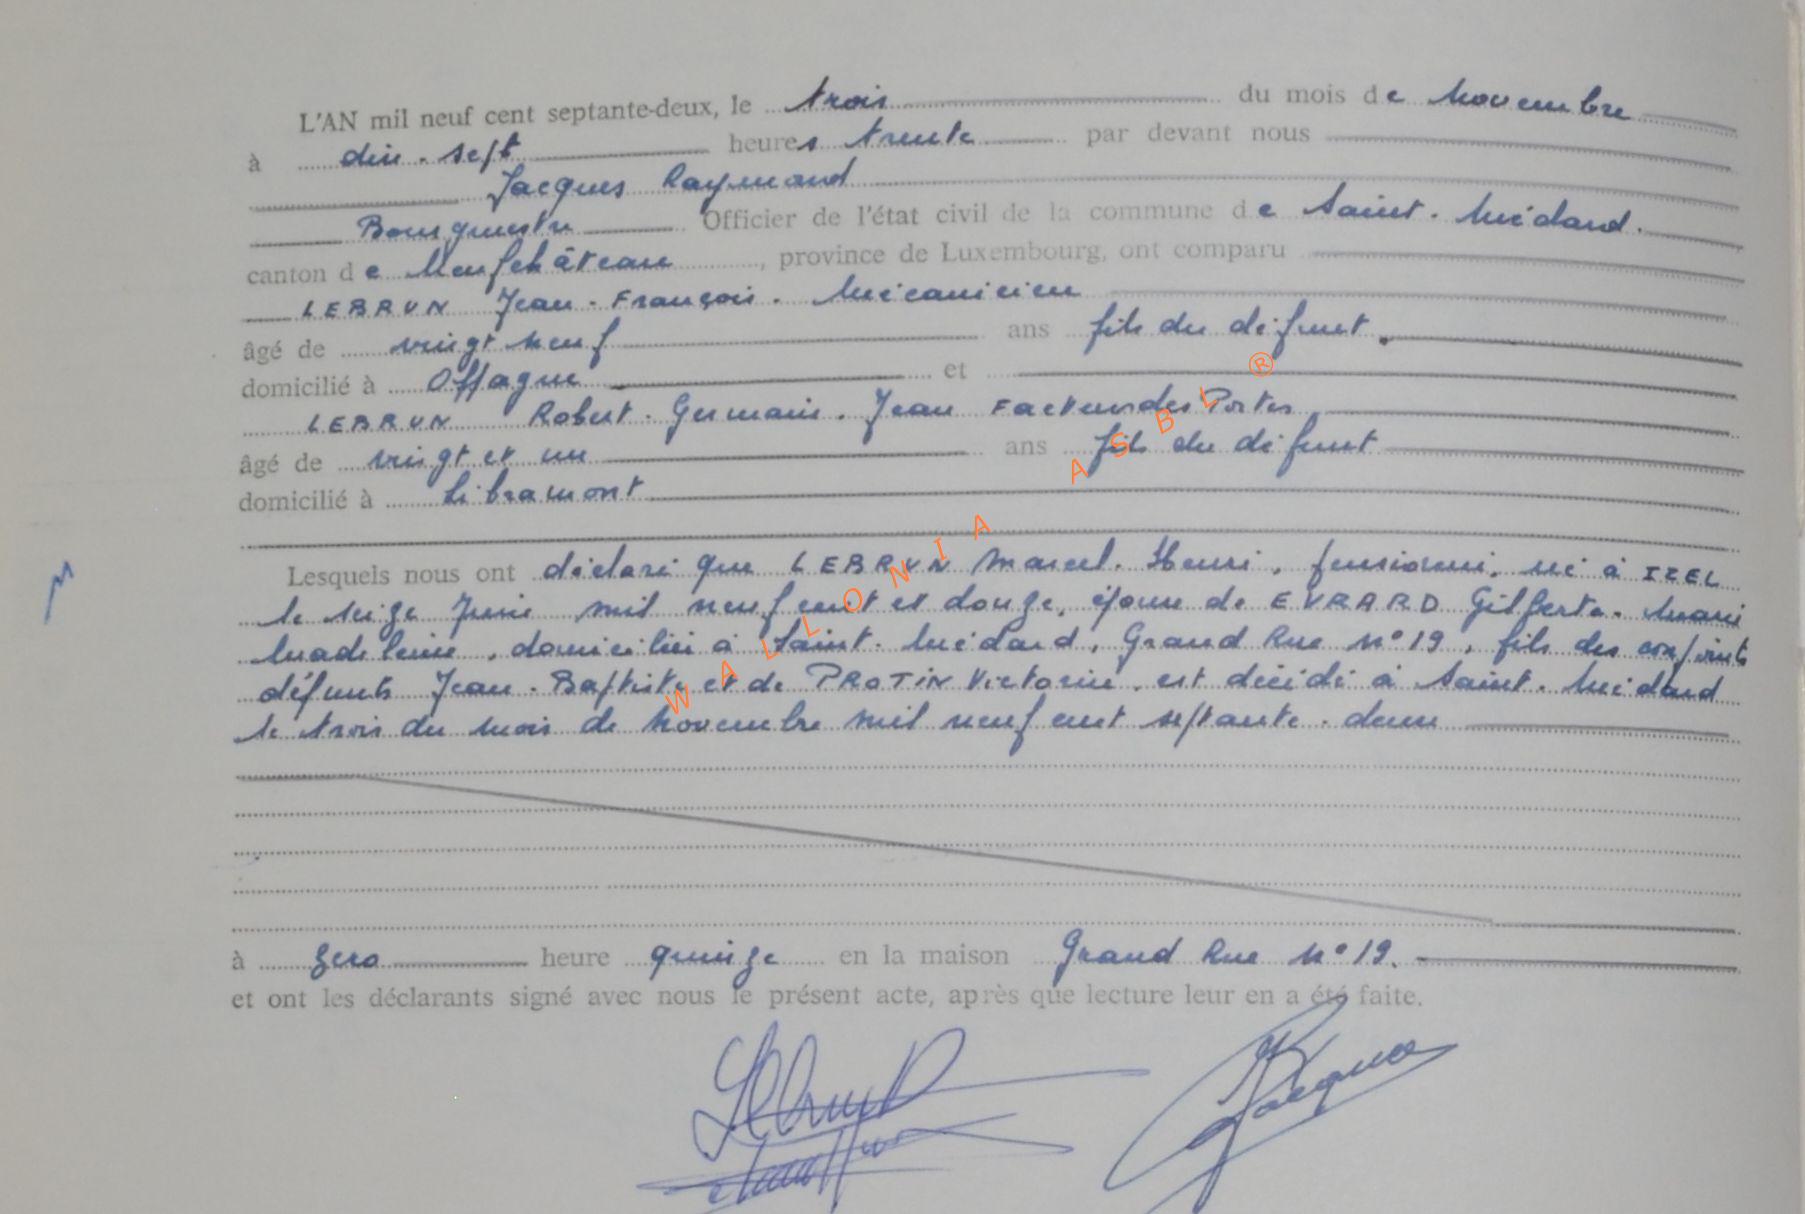 L'AN mil neuf cent septante-deux, le trois du mois de Novembre
à dix-sept heures trente par devant nous
Jacques Raymond
Bourgmestre Officier de l'état civil de la commune de Saint-Médard.
canton de Neufchâteau, province de Luxembourg, ont comparu
LEBRUN Jean-François. Mécanicien
âgé de vingt neuf ans fils du défunt.
domicilié à Offagne et
LEBRUN Robert-Germain-Jean Facteur des Postes
âgé de vingt et un ans fils du défunt
domicilié à Libramont
Lesquels nous ont déclaré que LEBRUN Marcel-Henri, pensionné, né à IZEL
le seize Juin mil neuf cent et douze, époux de EVRARD Gilberte-Marie
Madeleine, domicilié à Saint-Médard, Grand Rue N°19, fils des conjoints
défunts Jean-Baptiste et de PROTIN Victorine, est décédé à Saint-Médard
le trois du mois de Novembre mil neuf cent septante-deux
à zero heure quinze en la maison Grand Rue N°19.
et ont les déclarants signé avec nous le présent acte, après que lecture leur en a été faite.
Lebrun
Jacques
WALLONIA ASBL ®